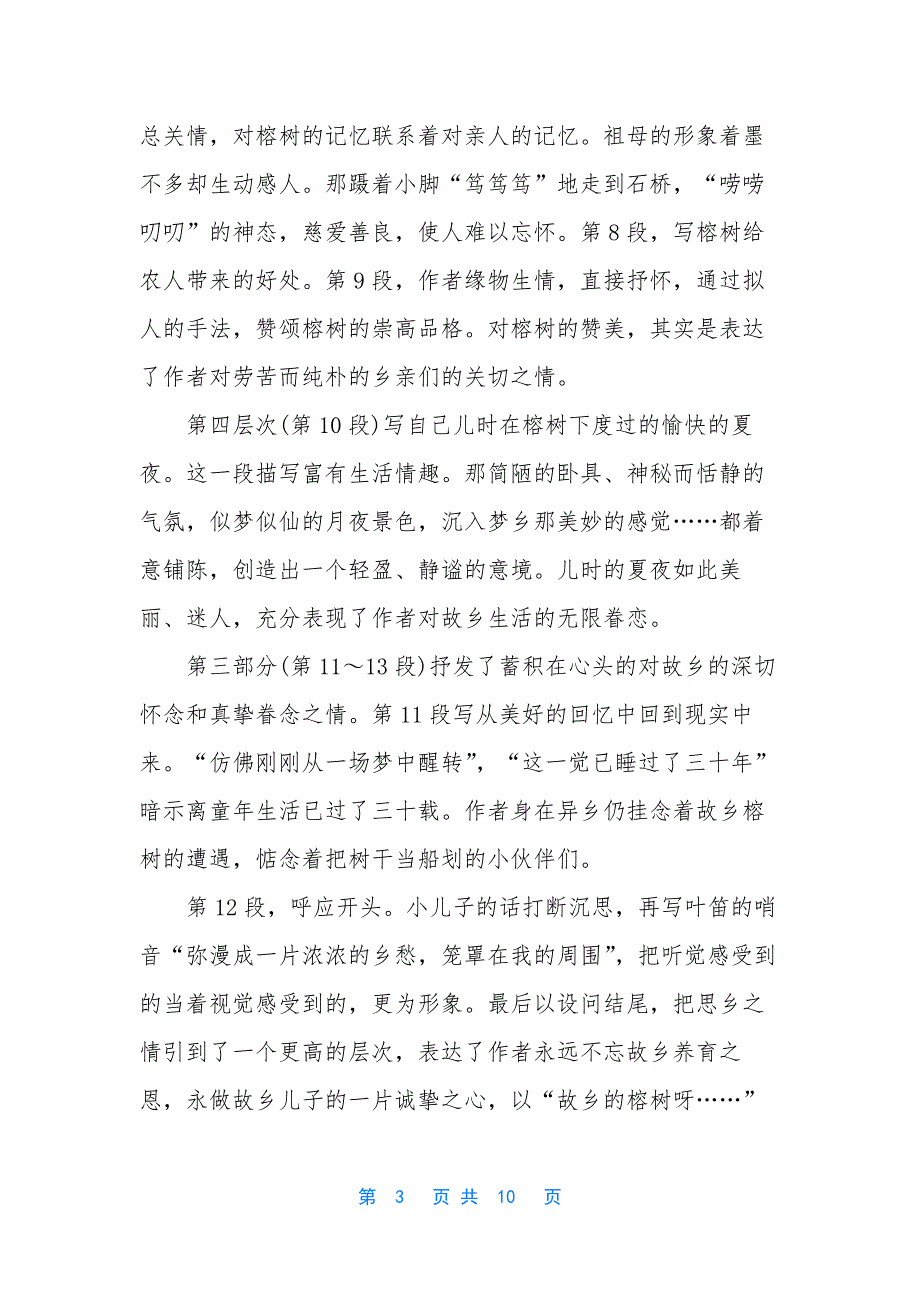 总关情，对榕树的记忆联系着对亲人的记忆。祖母的形象着墨
不多却生动感人。那蹑着小脚“笃笃笃”地走到石桥，“唠唠
叨叨”的神态，慈爱善良，使人难以忘怀。第 8 段，写榕树给
农人带来的好处。第 9 段，作者缘物生情，直接抒怀，通过拟
人的手法，赞颂榕树的崇高品格。对榕树的赞美，其实是表达
了作者对劳苦而纯朴的乡亲们的关切之情。
第四层次(第 10 段)写自己儿时在榕树下度过的愉快的夏
夜。这一段描写富有生活情趣。那简陋的卧具、神秘而恬静的
气氛，似梦似仙的月夜景色，沉入梦乡那美妙的感觉……都着
意铺陈，创造出一个轻盈、静谧的意境。儿时的夏夜如此美
丽、迷人，充分表现了作者对故乡生活的无限眷恋。
第三部分(第 11～13 段)抒发了蓄积在心头的对故乡的深切
怀念和真挚眷念之情。第 11 段写从美好的回忆中回到现实中
来。“仿佛刚刚从一场梦中醒转”，“这一觉已睡过了三十年”
暗示离童年生活已过了三十载。作者身在异乡仍挂念着故乡榕
树的遭遇，惦念着把树干当船划的小伙伴们。
第 12 段，呼应开头。小儿子的话打断沉思，再写叶笛的哨
音“弥漫成一片浓浓的乡愁，笼罩在我的周围”，把听觉感受到
的当着视觉感受到的，更为形象。最后以设问结尾，把思乡之
情引到了一个更高的层次，表达了作者永远不忘故乡养育之
恩，永做故乡儿子的一片诚挚之心，以“故乡的榕树呀……”
第 3 页 共 10 页